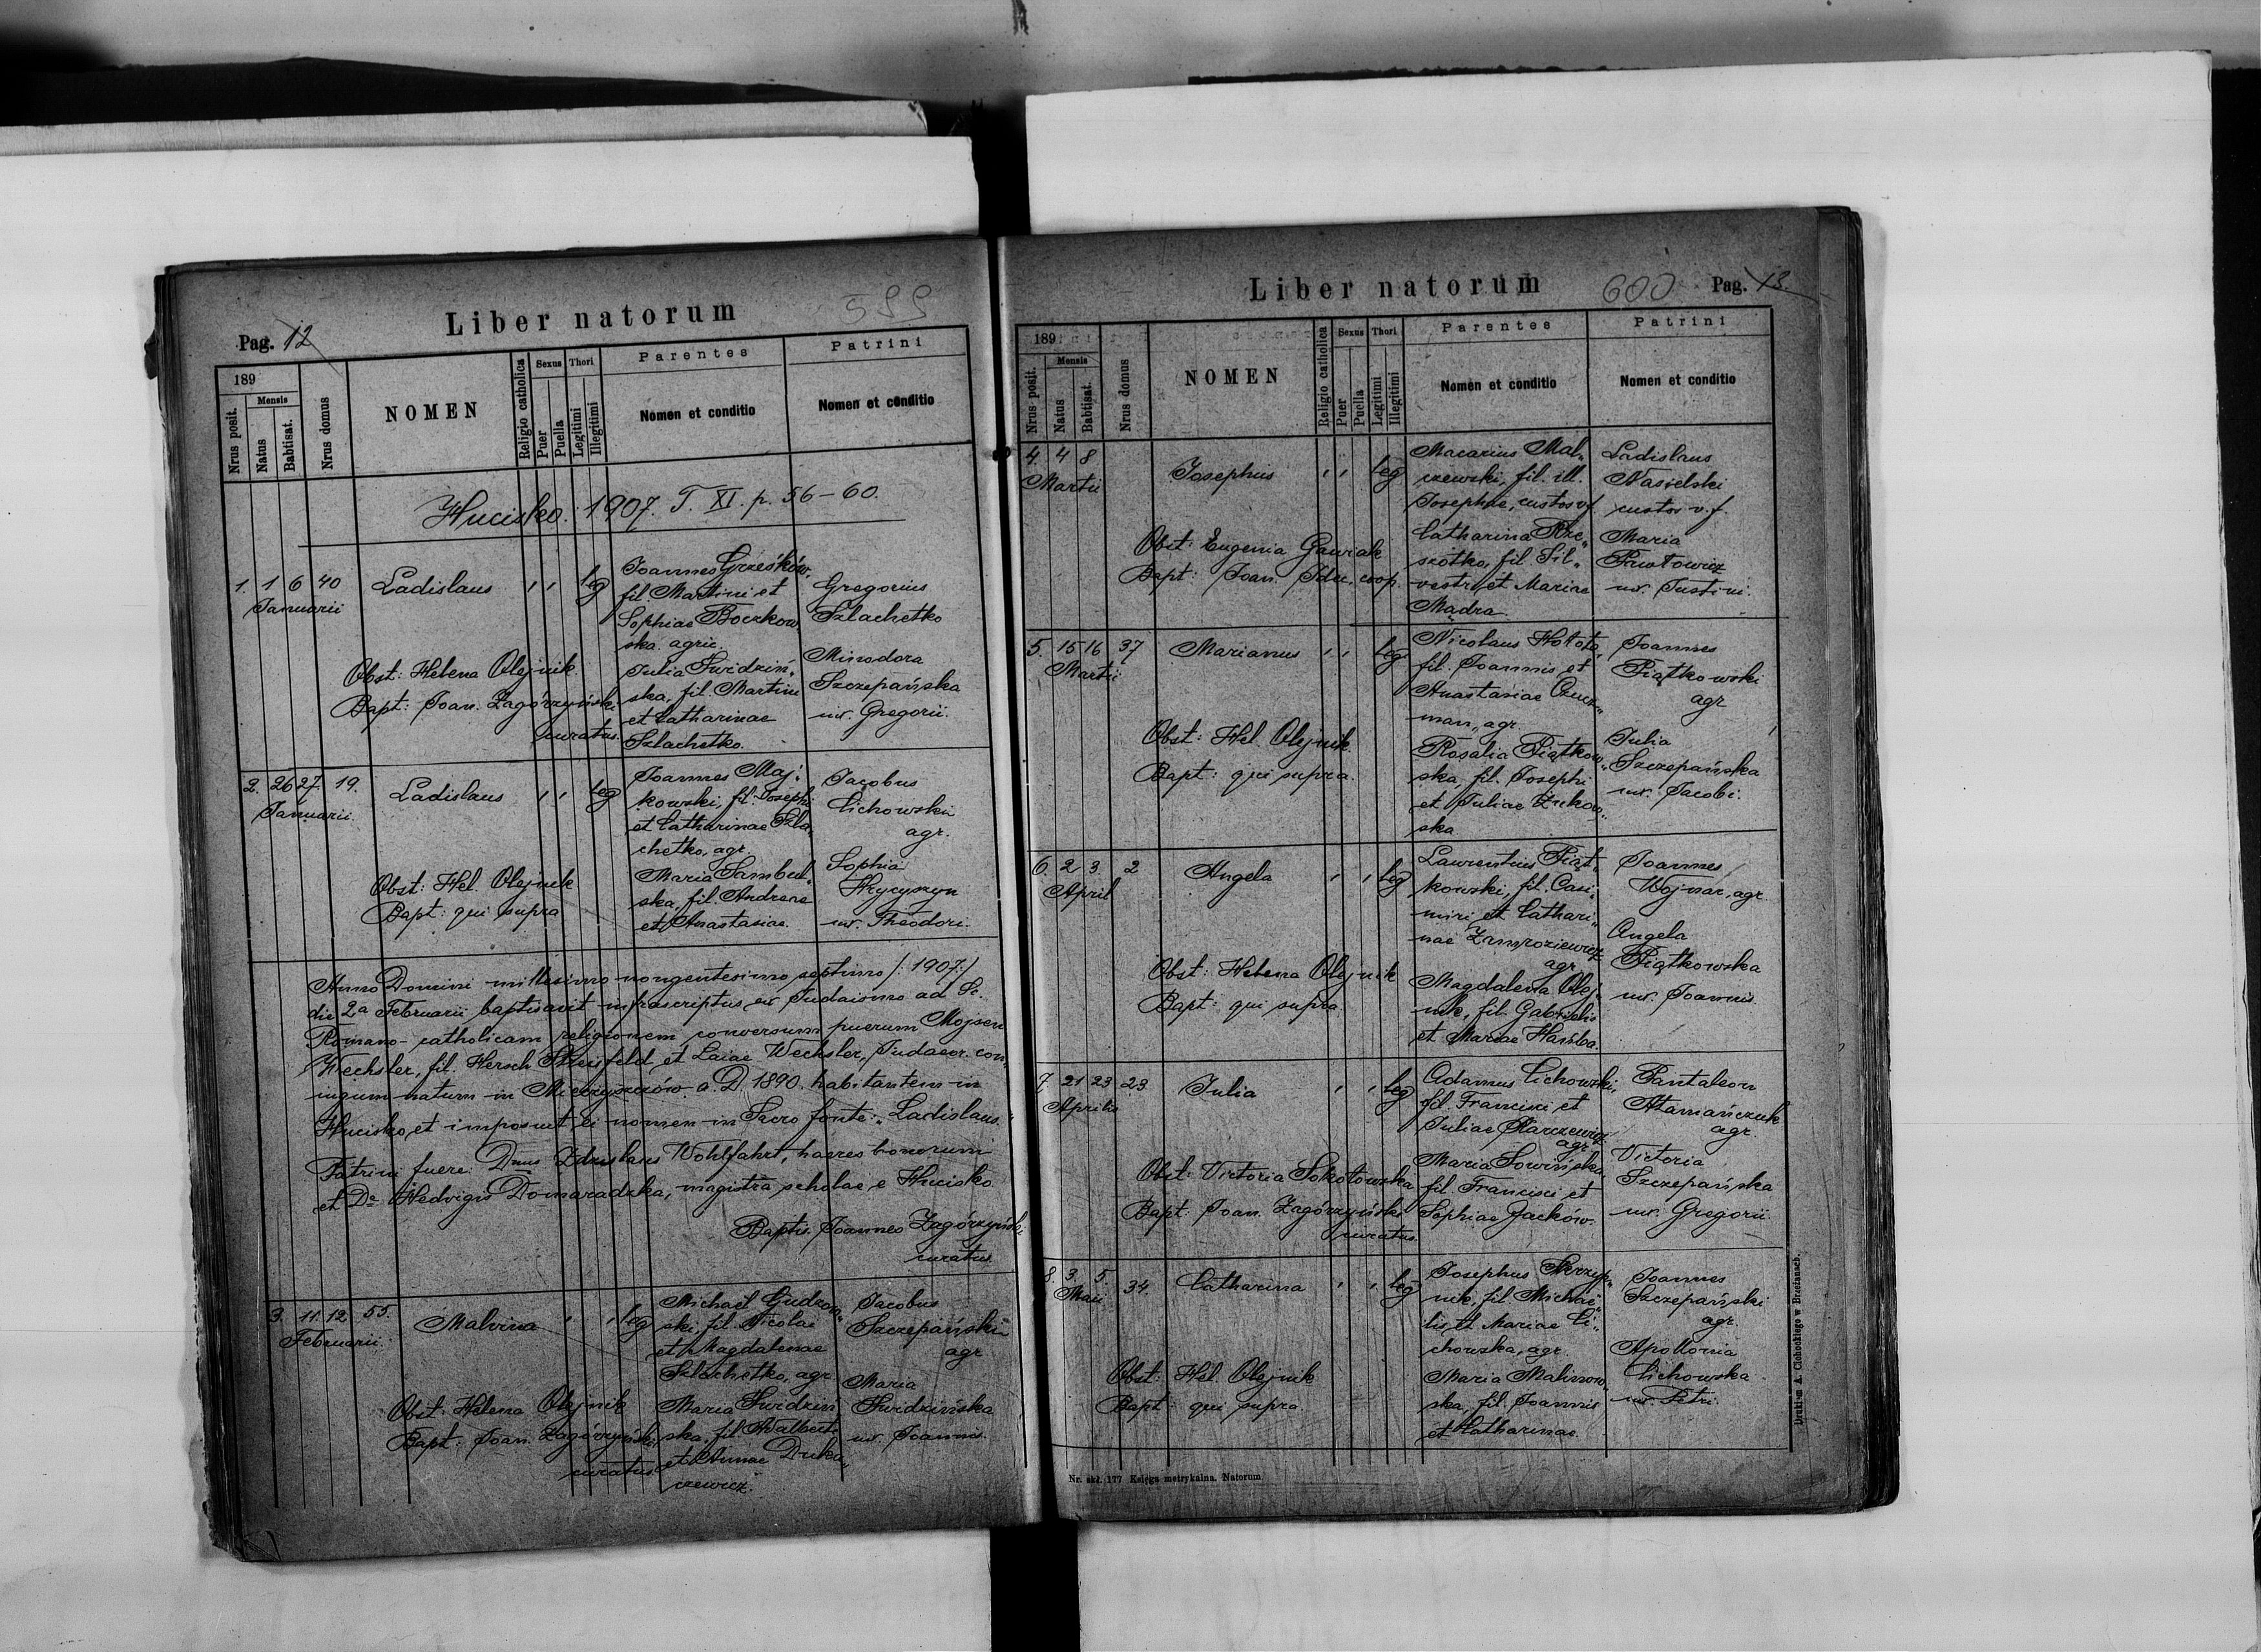 Pag. 12
Liber natorum
599
189
Nrus posit.
Mensis
Natus
Babtisat.
Nrus domus
NOMEN
Religio catholica
Sexus
Puer
Puella
Thori
Legitimi
Illegitimi
Parentes
Nomen et conditio
Patrini
Nomen et conditio
Hucisko. 1907. T. XI. p. 56-60.
1. 1 6 40
Januarii
Ladislaus
leg
Joannes Grześków,
fil. Martini et
Sophiae Boczkow
ska agric.
Julia Świdziń„
ska, fil. Martini
et Catharinae
Szlachetko.
Gregorius
Szlachetko
Minodora
Szczepańska
ux. Gregorii.
Obst: Helena Olejnik.
Bapt: Joan. Zagórzyński
curatus.
2. 26 27. 19.
Januarii.
Ladislaus
leg
Joannes Maj„
kowski, fil. Josephi
et Catharinae Szla„
chetko, agr.
Maria Sambul„
ska, fil. Andreae
et Anastasiae.
Jacobus
Cichowski
agr.
Sophia
Hrycyszyn
ux. Theodori.
Obst: Hel. Olejnik
Bapt: qui supra
Anno Domini millesimo nongentesimo septimo /: 1907:/
die 2a Februarii baptisavit infrascriptus ex Judaismo ad S.
Romano-catholicam religionem conversum puerum Mojsen
Wechsler, fil. Hersch Streifeld et Laiae Wechsler, Judaeor. con„
iugum natum in Mieczyszczów a. D. 1890. habitantem in
Hucisko, et imposuit ei nomen in Sacro fonte: „Ladislaus."
Patrini fuere: Dnus Zdzislaus Wohlfahrt, haeres bonorum
et Da Hedvigis Domaradzka, magistra scholae e Hucisko.
Baptis. Joannes Zagórzyński
curatus.
3. 11. 12. 55.
Februarii.
Malvina
leg
Michael Gudzow„
ski, fil. Nicolae
et Magdalenae
Szlachetko, agr
Maria Świdziń„
ska, fil. Adalberti
et Annae Duka„
czewicz.
Jacobus
Szczepański
agr
Maria
Świdzińska
ux. Joannis.
Obst: Helena Olejnik
Bapt: Joan. Zagórzyński
curatus
Liber natorum
600
Pag. 13.
189
Nrus posit.
Mensis
Natus
Babtisat.
Nrus domus
NOMEN
Religio catholica
Sexus
Puer
Puella
Thori
Legitimi
Illegitimi
Parentes
Nomen et conditio
Patrini
Nomen et conditio
4. 4 8
Martii
Josephus
leg
Macarius Mal„
czewski, fil. ill.
Josephae, custos v.f.
Catharina Rze„
szótko, fil Sil„
vestri et Mariae
Mądra.
Ladislaus
Nasielski
custos v. f.
Maria
Pawłowicz
ux. Justini.
Obst: Eugenia Gawrak
Bapt: Joan. coop.
5. 15 16 37
Martii
Marianus
leg
Nicolaus Hołota,
fil. Joannis, et
Anastasiae
man, agr.
Rosalia Piątkow„
ska, fil. Josephi
et Juliae Żukow„
ska
Joannes
Piątkowski
agr
Julia
Szczepańska
ux. Jacobi.
Obst: Hel. Olejnik
Bapt: qui supra.
6. 2 3. 2
April
Angela
leg
Laurentius Piąt„
kowski, fil. Casi„
miri et Cathari„
nae
agr.
Magdalena Olej„
nik, fil. Gabrielis
et Mariae Hańba.
Joannes
Wojnar, agr.
Angela
Piątkowska
ux. Joannis.
Obst: Helena Olejnik
Bapt: qui supra
7 21 23 23
Aprilis
Julia
leg
Adamus Cichowski,
fil. Francisci et
Juliae Marczewicz
agr.
Maria Sowińska,
fil Francisci et
Sophiae Jacków.
Pantaleon
Atamańczuk
agr.
Victoria
Szczepańska
ux. Gregorii.
Obst: Victoria Sokołowska
Bapt: Joan. Zagórzyński
curatus.
8. 3. 5. 34.
Maii
Catharina
leg
Josephus Skrzyp„
nik, fil. Michaë„
lis et Mariae Ci„
chowska, agr.
Maria Malinow„
ska, fil. Joannis
et Catharinae.
Joannes
Szczepański
agr.
Apollonia
Cichowska
ux. Petri.
Obst: Hel. Olejnik
Bapt qui supra.
Nr. skł. 177 Księga metrykalna. Natorum
Drukiem A. Cichockiego w Brzeżanach.